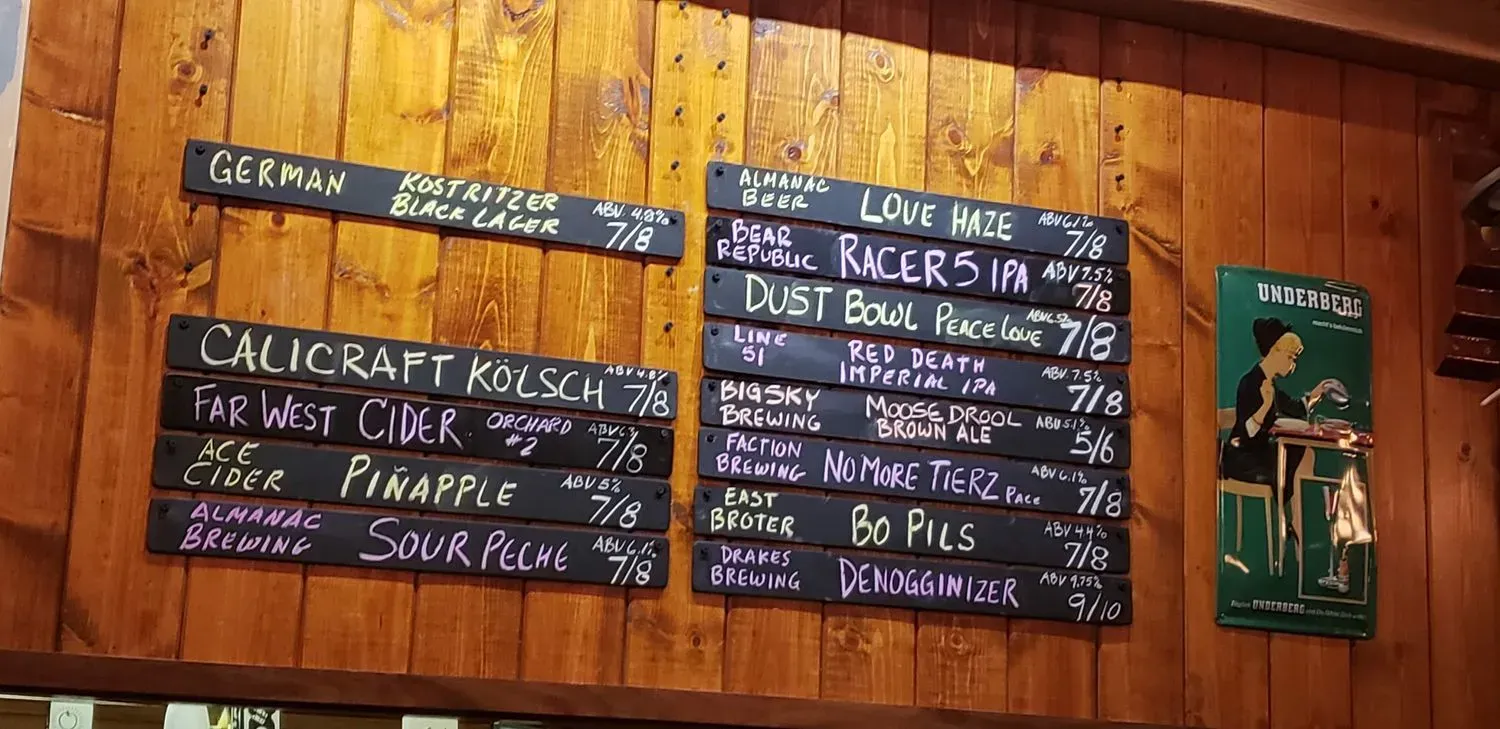 GERMAN
KOSTRITZER
BLACK LAGER
ABV. 4.8%
7/8
CALICRAFT KÖLSCH
ABV 4.8%
7/8
FAR WEST CIDER
ORCHARD
#2
7/8
ACE
CIDER
PIÑAPPLE
ABV 5%
7/8
ALMANAC
BREWING
SOUR PECHE
ABV 6.1%
7/8
ALMANAC
BEER
LOVE HAZE
ABV 6.1%
7/8
BEAR
REPUBLIC
RACER 5 IPA
ABV 7.5%
7/8
DUST BOWL PEACE LOVE
7/8
LINE
51
RED DEATH
IMPERIAL IPA
ABV. 7.5%
7/8
BIG SKY
BREWING
MOOSE DROOL
BROWN ALE
ABV 5.1%
5/6
FACTION
BREWING
NO MORE TIERZ PALE
ABV 6.1%
7/8
EAST
BROTER
BO PILS
ABV 4.4%
7/8
DRAKES
BREWING
DENOGGINIZER
ABV 9.75%
9/10
UNDERBERG
UNDERBERG